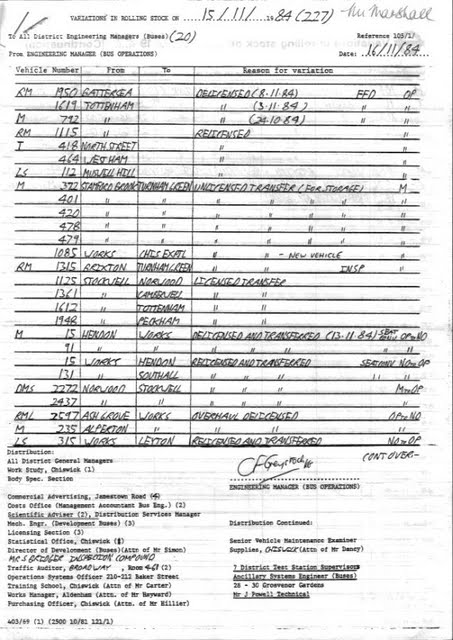 VARIATIONS IN ROLLING STOCK ON 15/11/1984 (227) Mr Marshall
To All District Engineering Managers (Buses) (20) Reference 103/1/
From ENGINEERING MANAGER (BUS OPERATIONS) Date: 16/11/84
Vehicle Number From To Reason for variation
RM 1950 BATTERSEA DELICENSED (8.11.84) FFD OP
1619 TOTTENHAM " (3.11.84) " "
M 792 " " (24.10.84) " "
RM 1115 " RELICENSED "
T 418 NORTH STREET " "
464 WEST HAM " "
LS 112 MUSWELL HILL " "
M 372 STAMFORD BROOK TURNHAM GREEN UNLICENSED TRANSFER (FOR STORAGE) M
401 " " " " " "
420 " " " " " "
478 " " " " " "
479 " " " " " "
1085 WORKS CHIS EXPTL " " - NEW VEHICLE "
RM 1315 BRIXTON TURNHAM GREEN " " INSP "
1125 STOCKWELL NORWOOD LICENSED TRANSFER
1361 " CAMBERWELL " "
1612 " TOTTENHAM " "
1948 " PECKHAM " "
M 15 HENDON WORKS DELICENSED AND TRANSFERRED (13.11.84) SEAT OP TO NO
91 " " " " " " "
15 WORKS HENDON RELICENSED AND TRANSFERRED SEAT NO TO OP
131 " SOUTHALL " " " " "
DMS 2272 NORWOOD STOCKWELL " " " M TO OP
2437 " " " " " "
RML 2597 ASH GROVE WORKS OVERHAUL DELICENSED OP TO NO
M 235 ALPERTON " " " "
LS 315 WORKS LEYTON RELICENSED AND TRANSFERRED NO TO OP
Distribution: CONT OVER-
All District General Managers
Work Study, Chiswick (1)
Body Spec. Section
ENGINEERING MANAGER (BUS OPERATIONS)
Commercial Advertising, Jamestown Road (4)
Costs Office (Management Accountant Bus Eng.) (2)
Scientific Adviser (2), Distribution Services Manager
Mech. Engr. (Development Buses) (3) Distribution Continued:
Licensing Section (3)
Statistical Office, Chiswick Senior Vehicle Maintenance Examiner
Director of Development (Buses)(Attn of Mr Simon) Supplies, CHISWICK (Attn of Mr Dancy)
MR S BRIDGER INSPECTION COMPOUND
Traffic Auditor, BROADWAY, Room 461 (2) 7 District Test Station Supervisors
Operations Systems Officer 210-212 Baker Street Ancillary Systems Engineer (Buses)
Training School, Chiswick (Attn of Mr Carter) 28 - 30 Grosvenor Gardens
Works Manager, Aldenham (Attn. of Mr Hayward) Mr J Powell Technical
Purchasing Officer, Chiswick (Attn. of Mr Hillier)
403/69 (1) (2500 10/81 121/1)